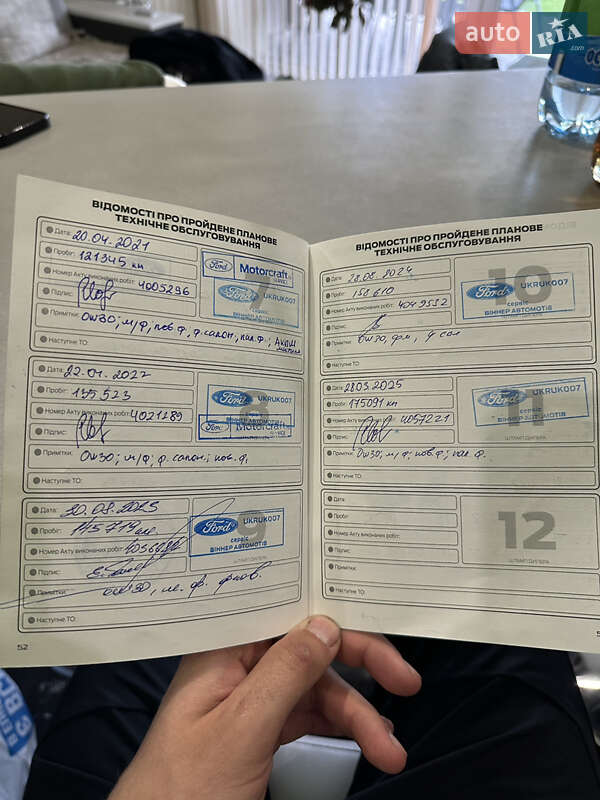 auto RIA.com
ВІДОМОСТІ ПРО ПРОЙДЕНЕ ПЛАНОВЕ
ТЕХНІЧНЕ ОБСЛУГОВУВАННЯ
Дата: 20.04.2021
Пробіг: 121345 км
Номер Акту виконаних робіт: 4005296
Підпис:
Примітки: 0w30; м/ф, пов ф, ф. салон, пал. ф;
Наступне ТО:
7
Ford Motorcraft
SERVICE
Ford UKRUK007
сервіс
ВІННЕР АВТОМОТІВ
Дата: 22.01.2022
Пробіг: 135523
Номер Акту виконаних робіт: 4021289
Підпис:
Примітки: 0w30; м/ф, ф. салон; пов. ф.
Наступне ТО:
8
Ford UKRUK007
сервіс
ВІННЕР АВТОМОТІВ
Ford Motorcraft
SERVICE
Дата:
Пробіг:
Номер Акту виконаних робіт:
Підпис:
Примітки:
Наступне ТО:
9
Ford UKRUK007
сервіс
ВІННЕР АВТОМОТІВ
52
ВІДОМОСТІ ПРО ПРОЙДЕНЕ ПЛАНОВЕ
ТЕХНІЧНЕ ОБСЛУГОВУВАННЯ
Дата: 28.08.2024
Пробіг: 158610
Номер Акту виконаних робіт:
Підпис:
Примітки: 0w30,
Наступне ТО:
10
Ford UKRUK007
сервіс
ВІННЕР АВТОМОТІВ
Дата: 28.03.2025
Пробіг: 175091 км
Номер Акту виконаних робіт: 4057221
Підпис:
Примітки: 0w30; м/ф; пов. ф; пал. ф.
Наступне ТО:
Ford UKRUK007
сервіс
ВІННЕР АВТОМОТІВ
ШТАМП ДИЛЕРА
Дата:
Пробіг:
Номер Акту виконаних робіт:
Підпис:
Примітки:
Наступне ТО:
12
ШТАМП ДИЛЕРА